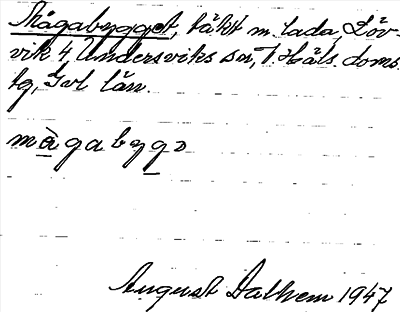 Mågabygget, täkt m. lada, Löv-
vik 4, Undersviks sn, V. Häls. doms.
tg, Gvl län.
mågabyggə
August Dalhem 1947